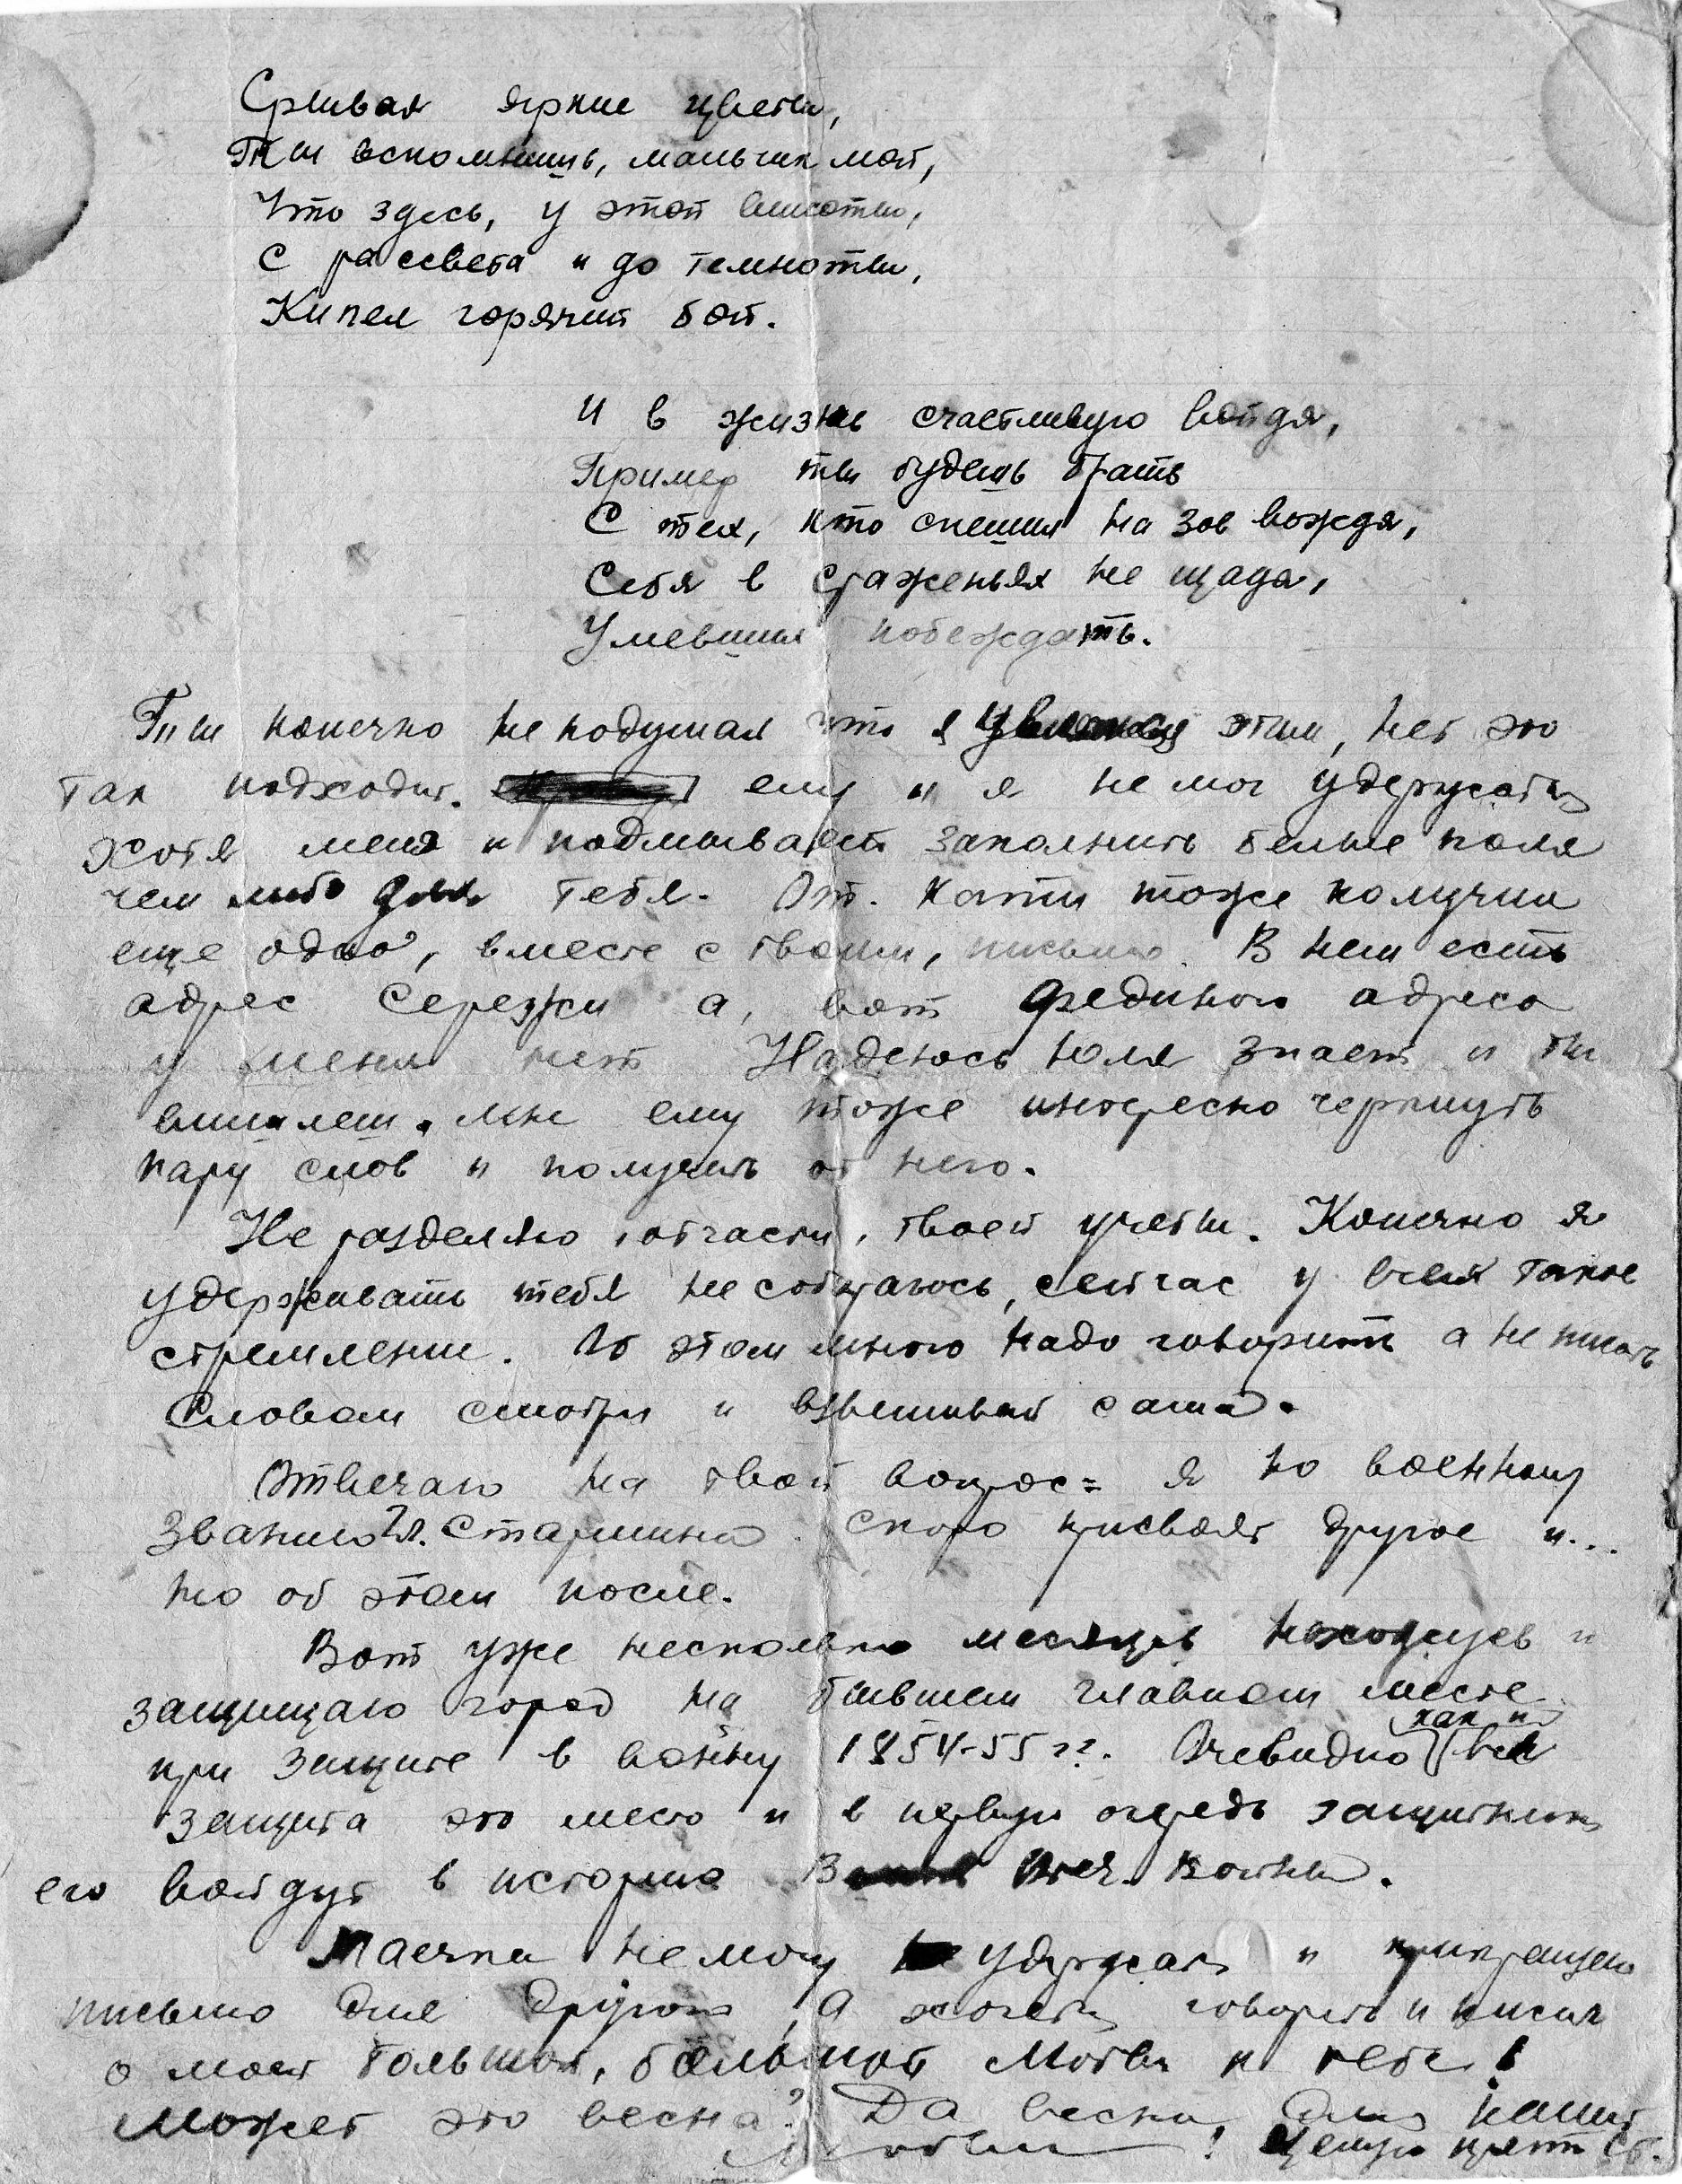 Срывая яркие цветы,
Ты вспомнишь, мальчик мой,
Что здесь, у этой высоты,
С рассвета и до темноты,
Кипел горячий бой.
И в жизнь счастливую войдя,
Пример ты будешь брать
С тех, кто спешил на зов вождя,
Себя в сраженьях не щадя,
Умевших побеждать.
Ты конечно не подумал что я этим, нет это
так подходит. ему и я не мог удержатся
хотя меня и подмывает заполнить белые поля
чем либо для тебя. От Кати тоже получил
еще одно, вместе с твоим, письмо. В нем есть
адрес Сережи а, вот Фединого адреса
у меня нет Надеюсь Юля знает и ты
вышлеш. мне ему тоже интересно черкнуть
пару слов и получить от него.
Не разделяю, отчасти, твоей учебы. Конечно я
удерживать тебя не собираюсь, сейчас у всех такое
стремление. Об этом много надо говорить а не писать
Словом смотри и взвешивай сама.
Отвечаю на твой вопрос = я по военному
званию Гл. Старшина. Скоро присвоят другое и...
но об этом после.
Вот уже несколько месяцев нахожусь и
защищаю город на бывшем главном месте
при защите в войну 1854-55 гг. Очевидно как и вся
защита это место и в первую очередь защитники
его войдут в историю Отеч. войны.
не могу удержать и прикращаю
письмо для другого, а хочется говорить и писать
о моей большой, большой любви к тебе!
Может это весна? Да весна,
Любви! Целую крепко